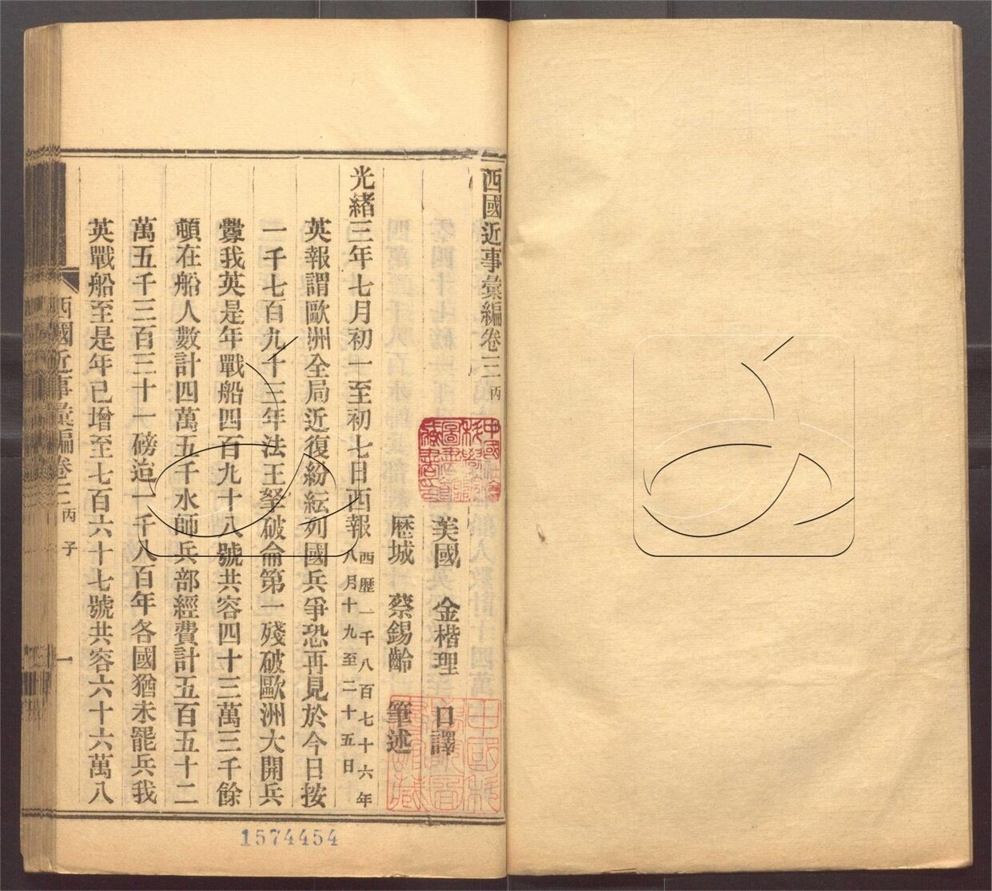 西國近事彙編卷三 丙
美國 金楷理 口譯
歷城 蔡錫齡 筆述
光緒三年七月初一至初七日西報 西歷一千八百七十六年八月十九至二十五日
英報謂歐洲全局近復紛紜列國兵爭恐再見於今日按
一千七百九十三年法王拏破侖第一殘破歐洲大開兵
釁我英是年戰船四百九十八號共容四十三萬三千餘
頓在船人數計四萬五千水師兵部經費計五百五十二
萬五千三百三十一磅迨一千八百年各國猶未罷兵我
英戰船至是年已增至七百六十七號共容六十六萬八
西國近事彙編卷三 丙子 一
1574454